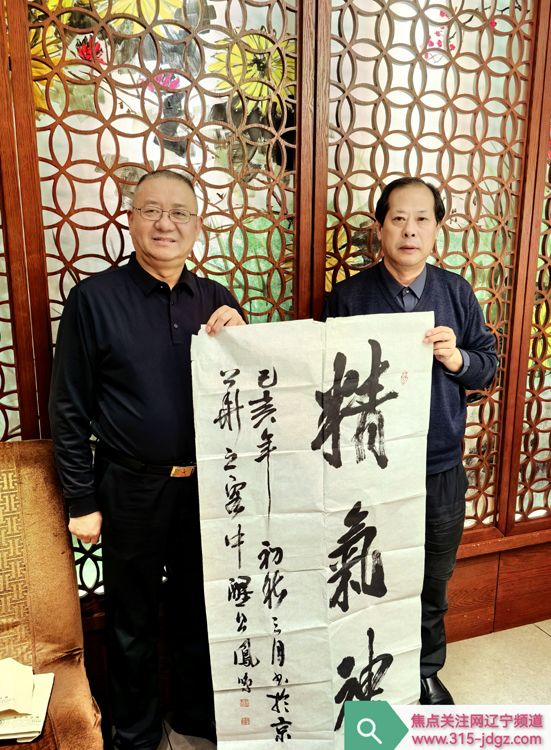 精氣神
己亥年初秋三月书於京
之客中醒公鳳
焦点关注网辽宁频道
www.315-jdgz.com